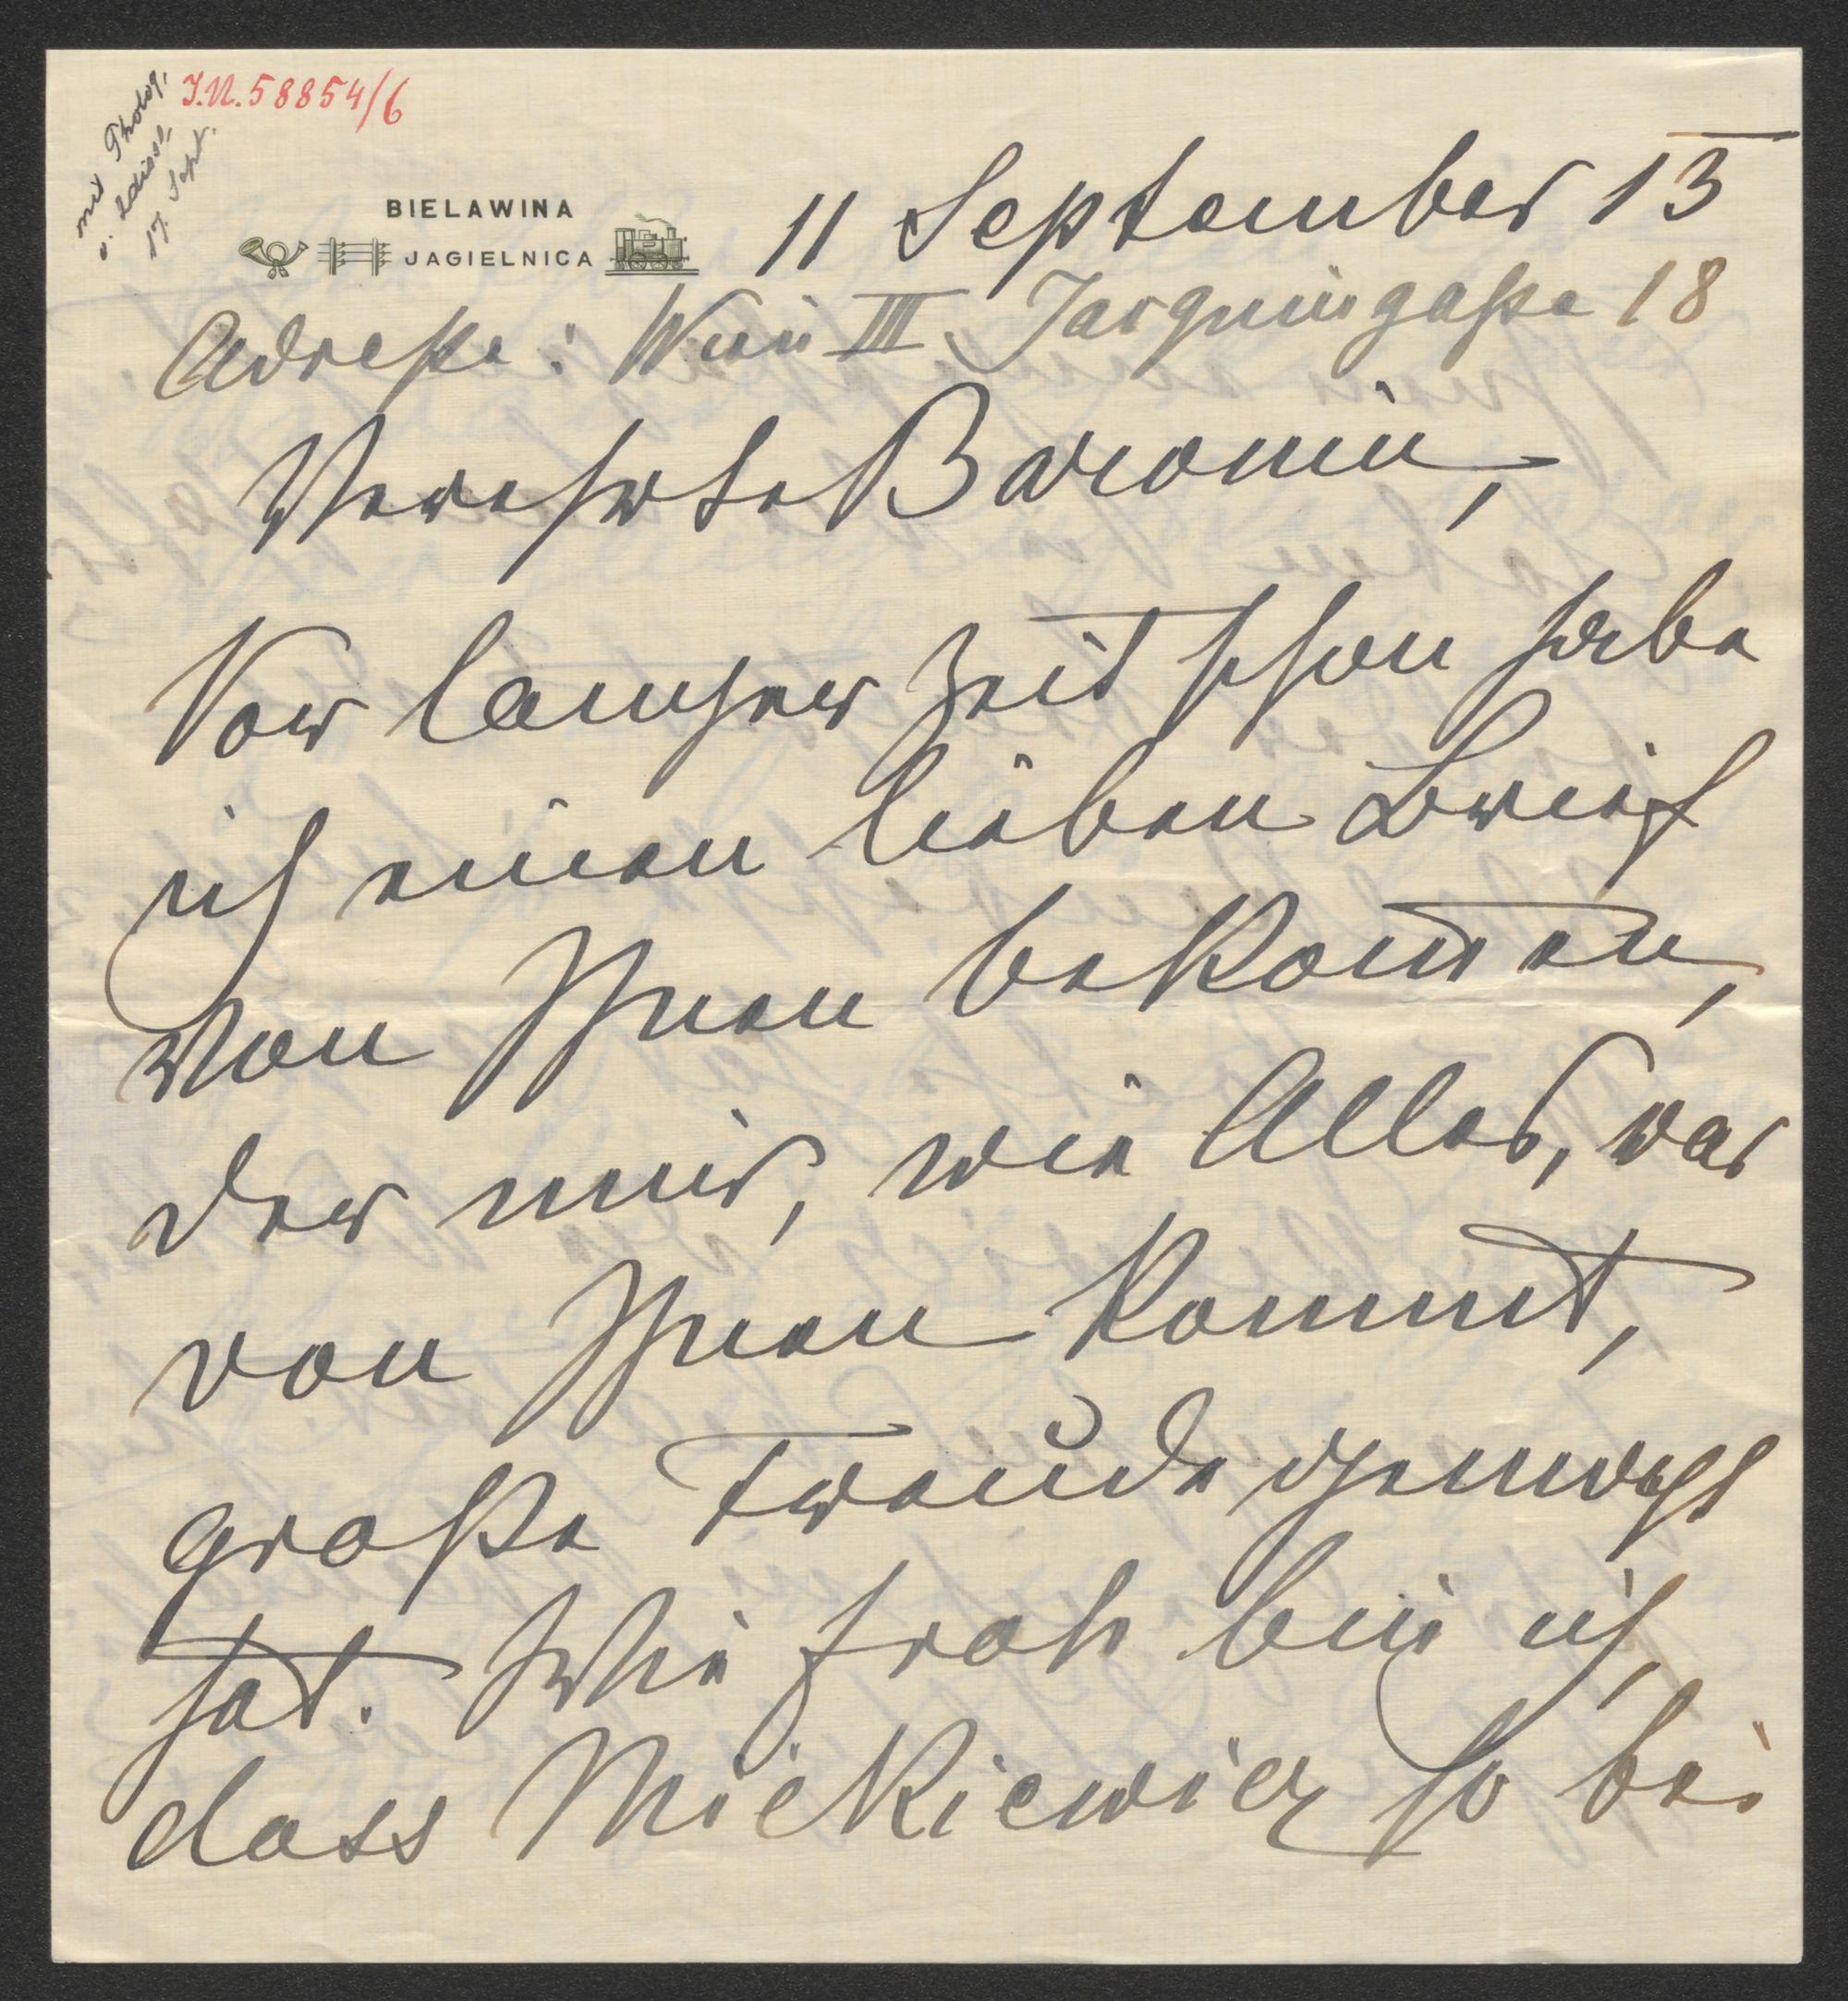 I.N. 58854/6
mit Photog.
17. Sept.
BIELAWINA
JAGIELNICA
11 September 13
Adreße: Wien III. Jacquingaße 18
Verehrte Baronin,
Vor langer Zeit schon habe
ich einen lieben Brief
von Ihnen bekom̅en,
der mir, wie Alles, was
von Ihnen kommt,
große Freude gemacht
hat. Wie froh bin ich,
dass Mickiewicz so bei